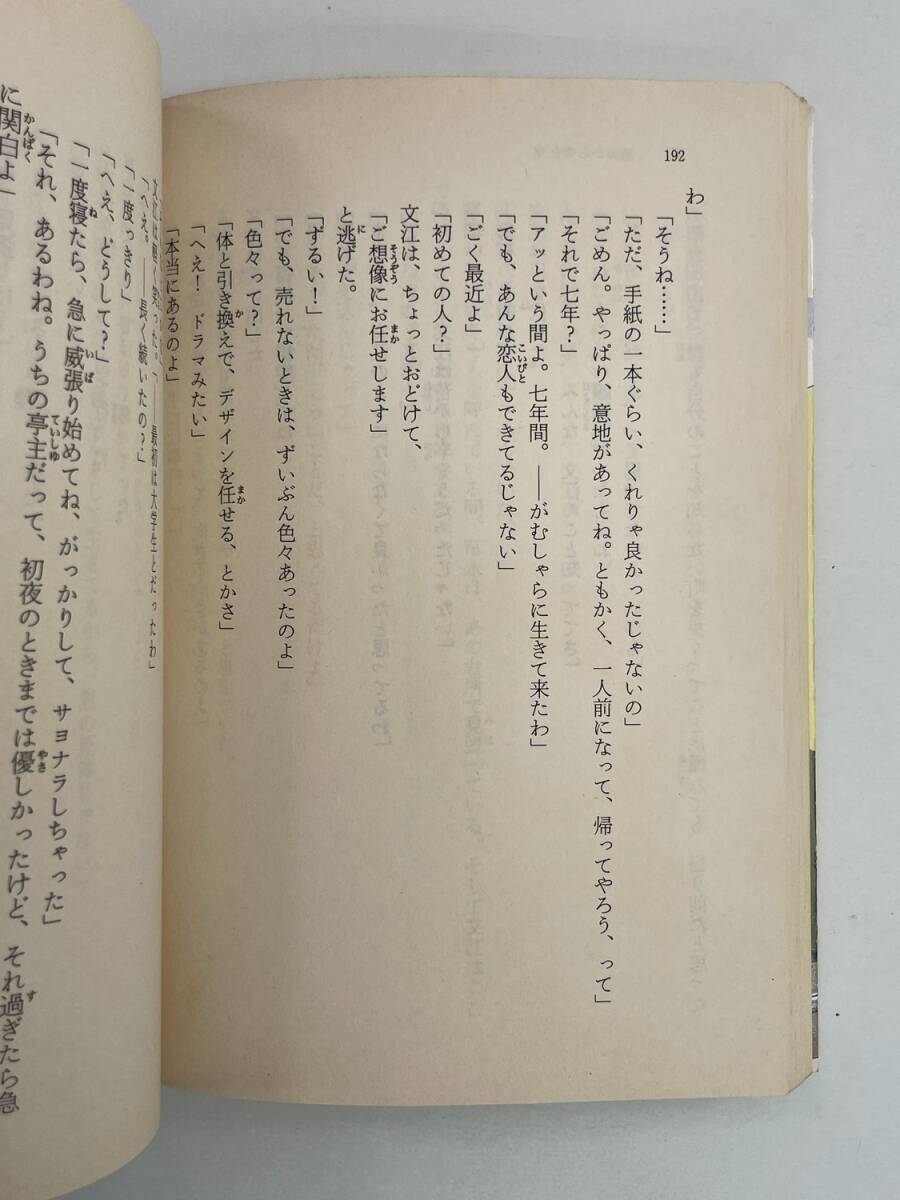 192
わ」
「そうね……」
「ただ、手紙の一本ぐらい、くれりゃ良かったじゃないの」
「ごめん。やっぱり、意地があってね。ともかく、一人前になって、帰ってやろう、って」
「それで七年？」
「アッという間よ。七年間。――がむしゃらに生きて来たわ」
「でも、あんな恋人もできてるじゃない」
「ごく最近よ」
「初めての人？」
文江は、ちょっとおどけて、
「ご想像にお任せします」
と逃げた。
「ずるい！」
「でも、売れないときは、ずいぶん色々あったのよ」
「色々って？」
「体と引き換えで、デザインを任せる、とかさ」
「へえ！　ドラマみたい」
「本当にあるのよ」
文江は軽く笑った。「――最初は大学生とだったわ」
「へえ。――長く続いたの？」
「一度っきり」
「へえ、どうして？」
「一度寝たら、急に威張り始めてね、がっかりして、サヨナラしちゃった」
「それ、あるわね。うちの亭主だって、初夜のときまでは優しかったけど、それ過ぎたら急
に関白よ」